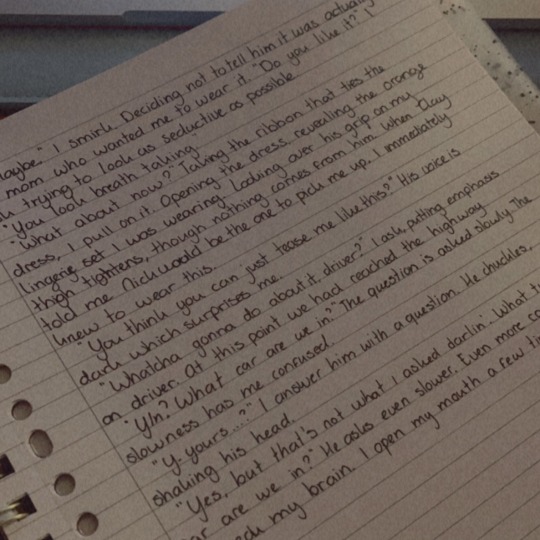 Maybe" I smirk. Deciding not to tell him it was actually
mom who wanted me to wear it. "Do you like it?" I
trying to look as seductive as possible
"You look breath taking
"What about now?" Taking the ribbon that ties the
dress, I pull on it. Opening the dress, revealing the orange
lingerie set I was wearing. Looking over his grip on my
thigh tightens, though nothing comes from him. When Clay
told me Nick would be the one to pick me up. I immediately
knew to wear this.
"You think you can just tease me like this?" His voice is
dark which surprises me.
"Whatcha gonna do about it, driver?" I ask, putting emphasis
on driver. At this point we had reached the highway
"Y/n? What car are we in?" The question is asked slowly. The
slowness has me confused.
"Y. yours...?" I answer him with a question. He chuckles,
shaking his head.
"Yes, but that's not what I asked darlin'. What
car are we in?" He asks even slower. Even more
my brain. I open my mouth a few